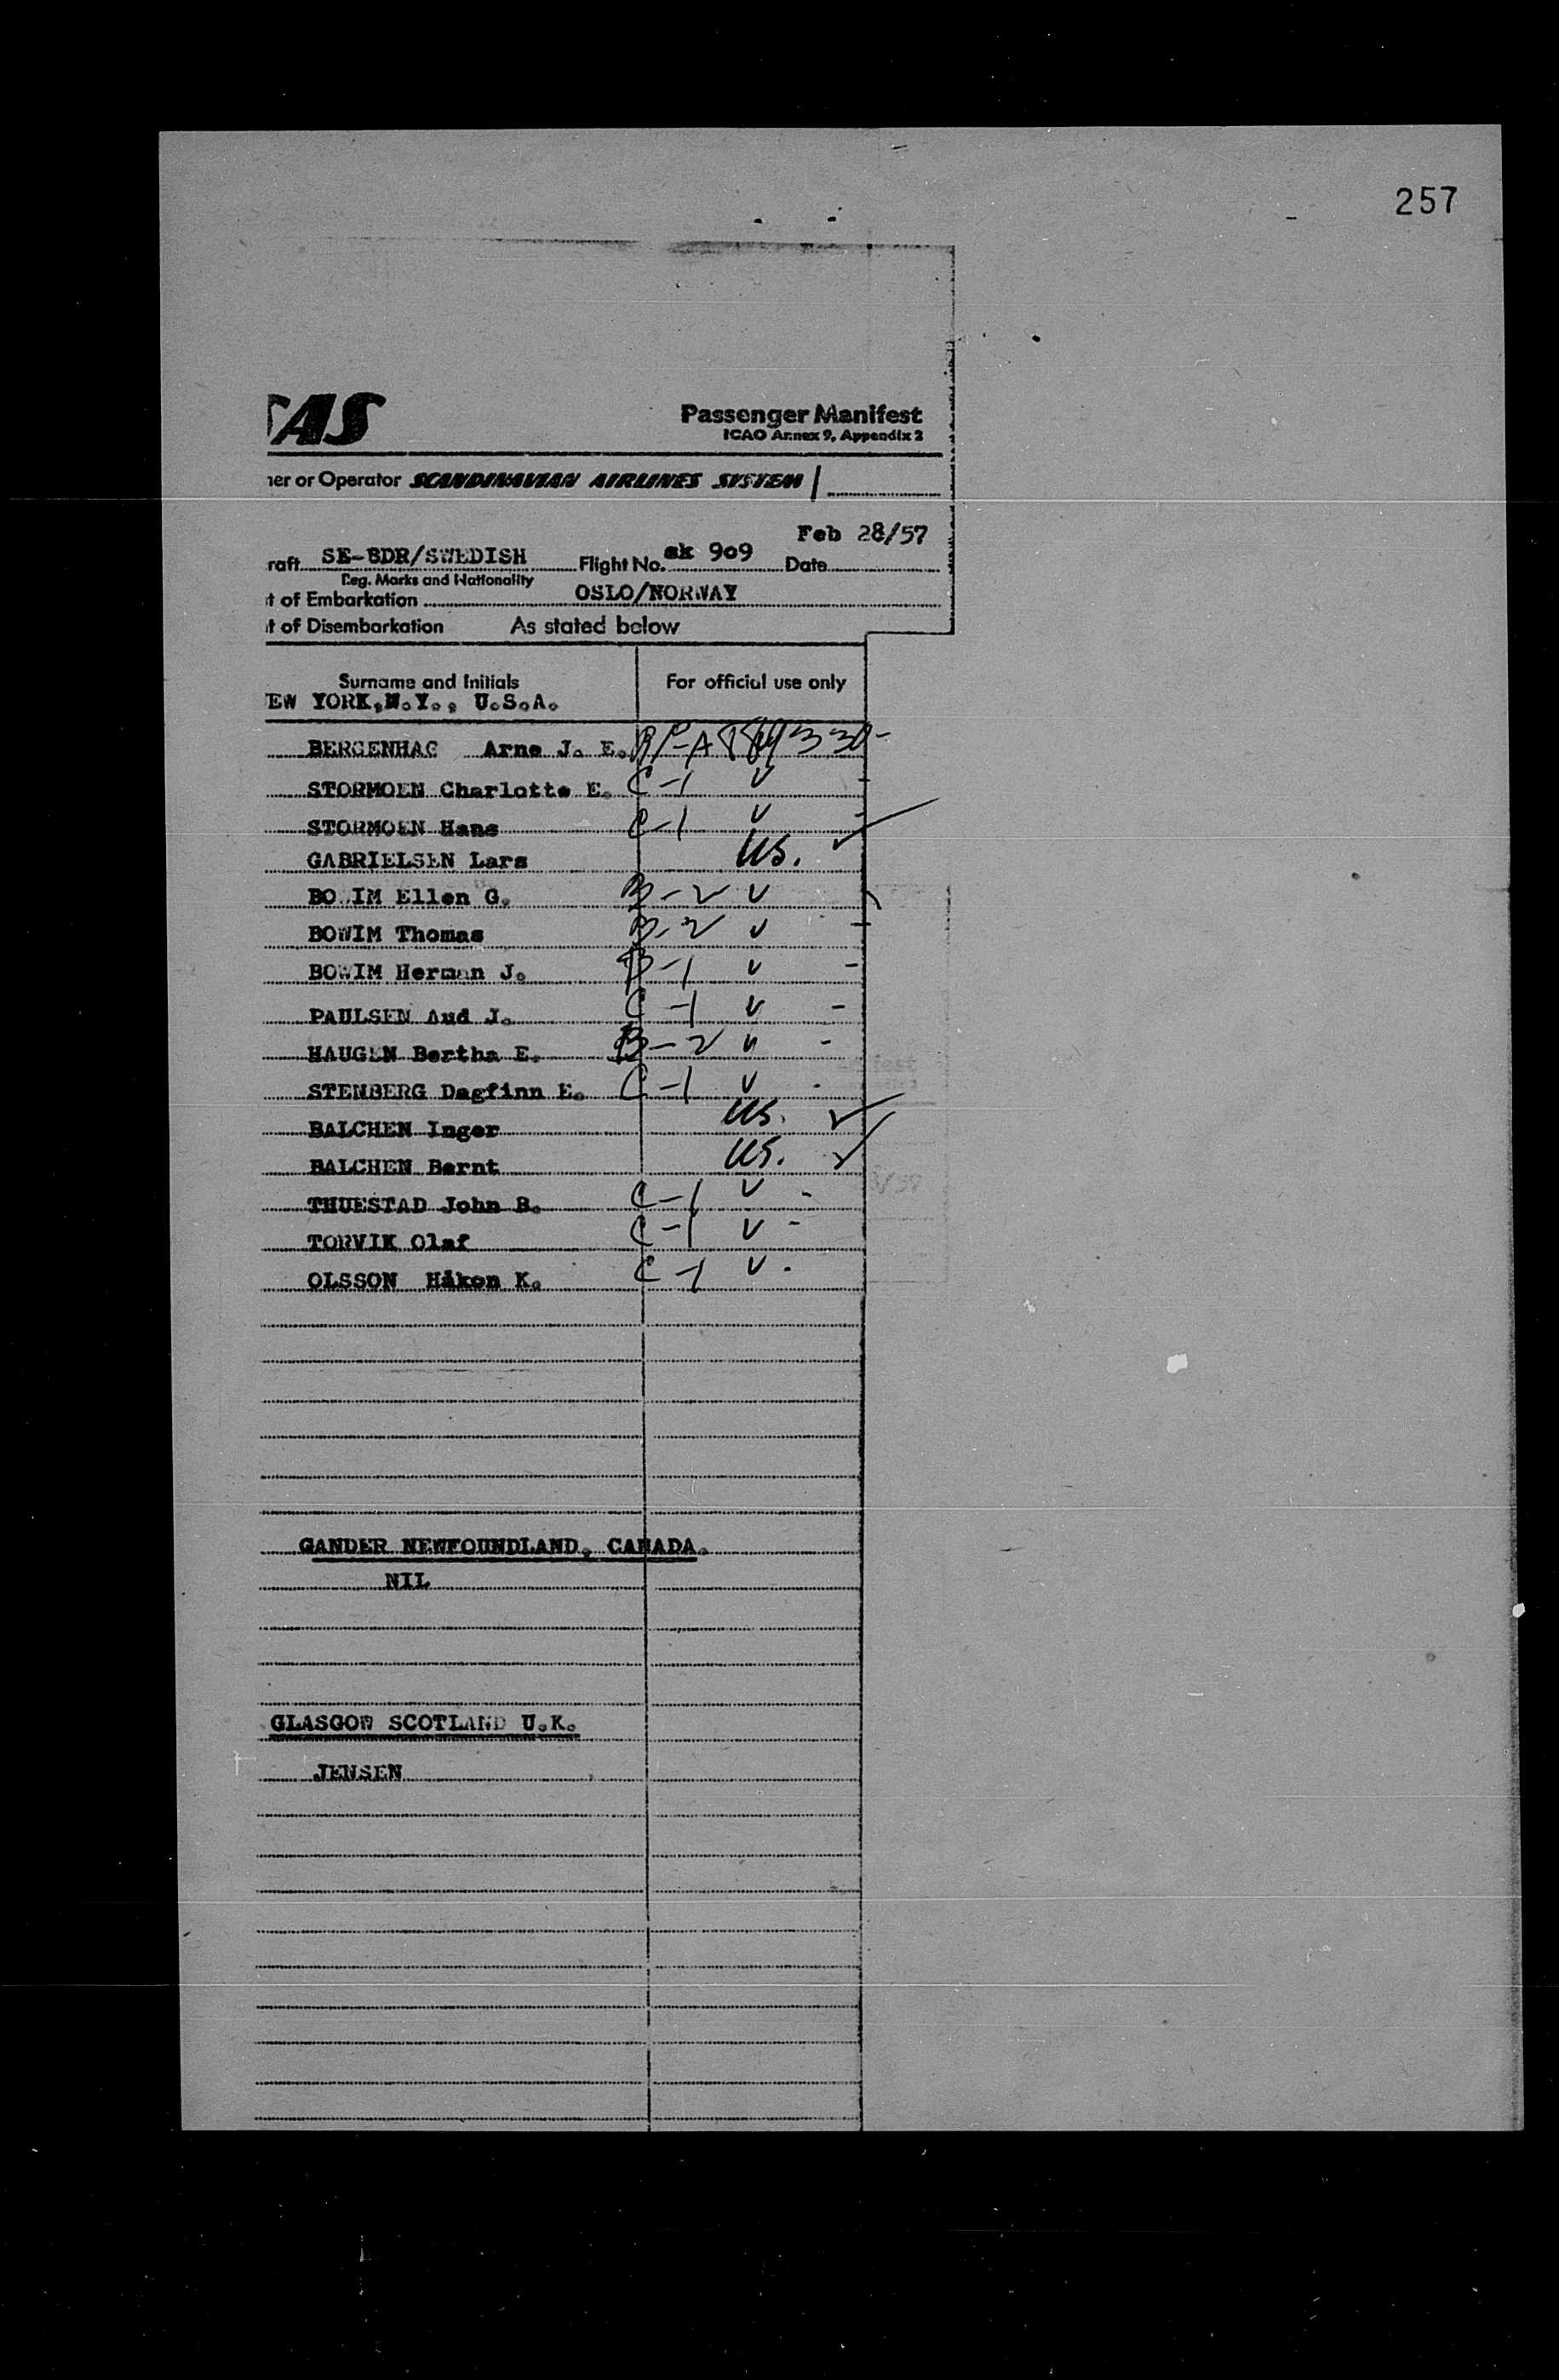 257
SAS
Passenger Manifest
ICAO Annex 9, Appendix 2
ner or Operator SCANDINAVIAN AIRLINES SYSTEM
Feb 28/57
raft SE-BDR/SWEDISH Flight No. sk 909 Date
Reg. Marks and Nationality
t of Embarkation OSLO/NORWAY
t of Disembarkation As stated below
Surname and Initials For official use only
EW YORK,N.Y., U.S.A.
BERGENHAG Arne J. E.
STORMOEN Charlotte E. C-1 v
STORMOEN Hans C-1 v
GABRIELSEN Lars US.
BO IM Ellen G. B-2 v
BOWIM Thomas B-2 v
BOWIM Herman J. B-1 v -
PAULSEN Aud J. C-1 v -
HAUGEN Bertha E. B-2 v -
STENBERG Dagfinn E. C-1 v
BALCHEN Inger US.
BALCHEN Bernt US.
THUESTAD John B. C-1 v -
TORVIK Olaf C-1 v -
OLSSON Håkon K. C-1 v -
GANDER NEWFOUNDLAND, CANADA.
NIL
GLASGOW SCOTLAND U.K.
JENSEN